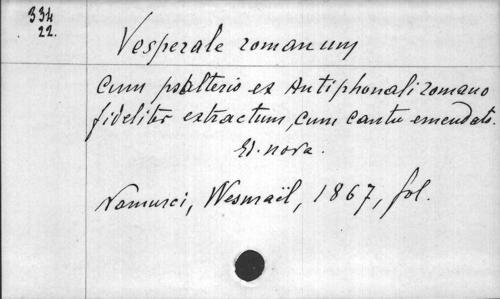 334
22.
Vesperale romanum
cum psalterio ex Antiphonali romano
fideliter extractum, cum cantu emendato.
Ed. nova.
Namurci, Wesmaël, 1867, fol.